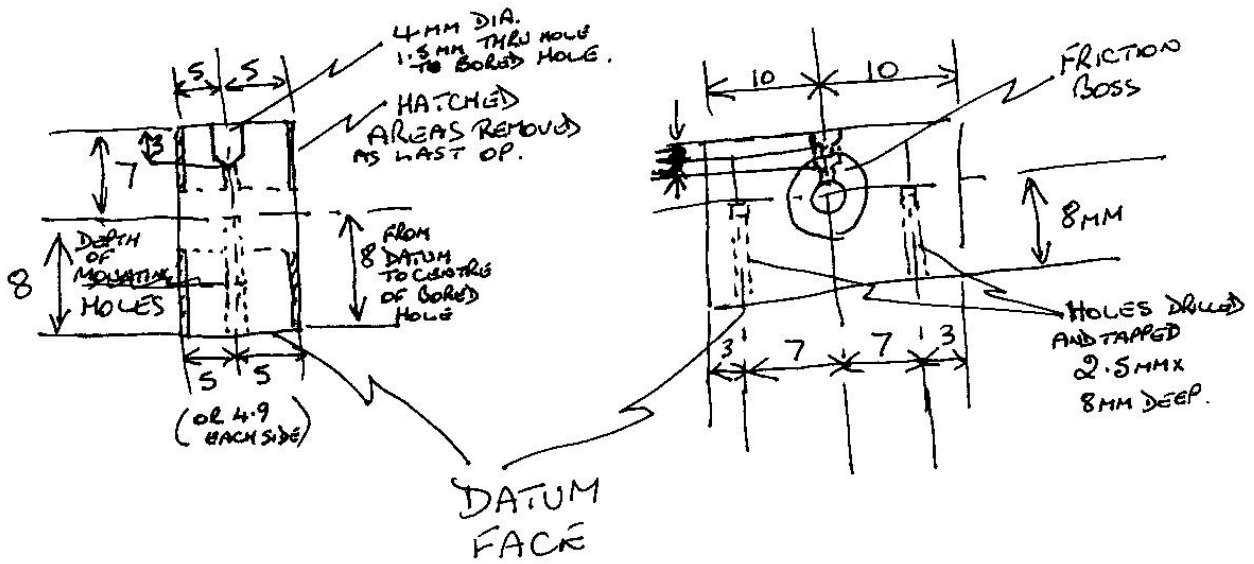 4 MM DIA.
1.5MM THRU HOLE
TO BORED HOLE.
5 5
HATCHED
AREAS REMOVED
AS LAST OP.
3
7
8
DEPTH
OF
MOUNTING
HOLES
FROM
8 DATUM
TO CENTRE
OF BORED
HOLE
5 5
(OR 4.9
EACH SIDE)
10 10
FRICTION
BOSS
8MM
3 7 7 3
HOLES DRILLED
AND TAPPED
2.5MM X
8MM DEEP.
DATUM
FACE